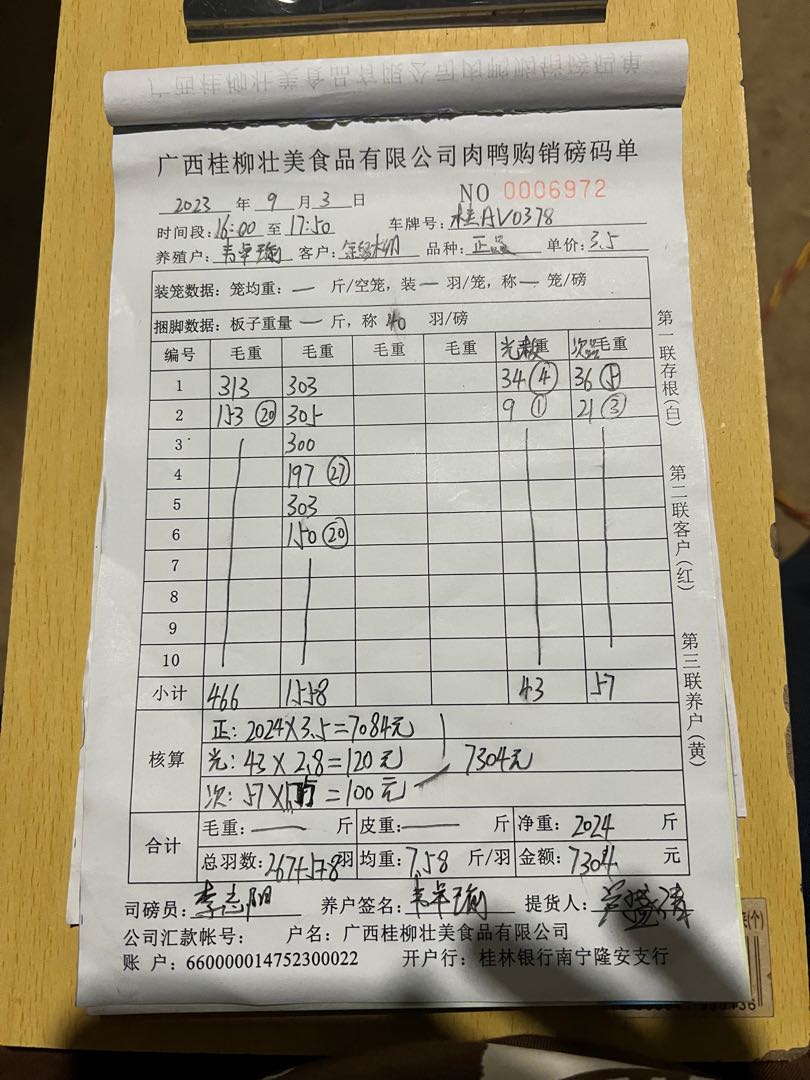 广西桂柳壮美食品有限公司肉鸭购销磅码单
2023 年 9 月 3 日 NO 0006972
时间段:16:00 至 17:50 车牌号:桂AV0378
养殖户: 客户: 品种:正品 单价:3.5
装笼数据:笼均重:— 斤/空笼,装— 羽/笼,称— 笼/磅
捆脚数据:板子重量 — 斤,称 40 羽/磅
编号 毛重 毛重 毛重 毛重 重 次品毛重
1 313 303 34 ④ 36 ⑤
2 153 ⑳ 305 9 ① 21 ③
3 300
4 197 ㉗
5 303
6 150 ⑳
7
8
9
10
小计 466 1558 43 57
核算
正:2024×3.5=7084元
光:43×2.8=120元 7304元
次:57× =100元
合计
毛重:— 斤 皮重:— 斤 净重:2024 斤
总羽数:267+5+8羽 均重:7.58 斤/羽 金额:7304 元
司磅员:李志阳 养户签名: 提货人:
公司汇款帐号: 户名:广西桂柳壮美食品有限公司
账 户:660000014752300022 开户行:桂林银行南宁隆安支行
第一联存根(白)
第二联客户(红)
第三联养户(黄)